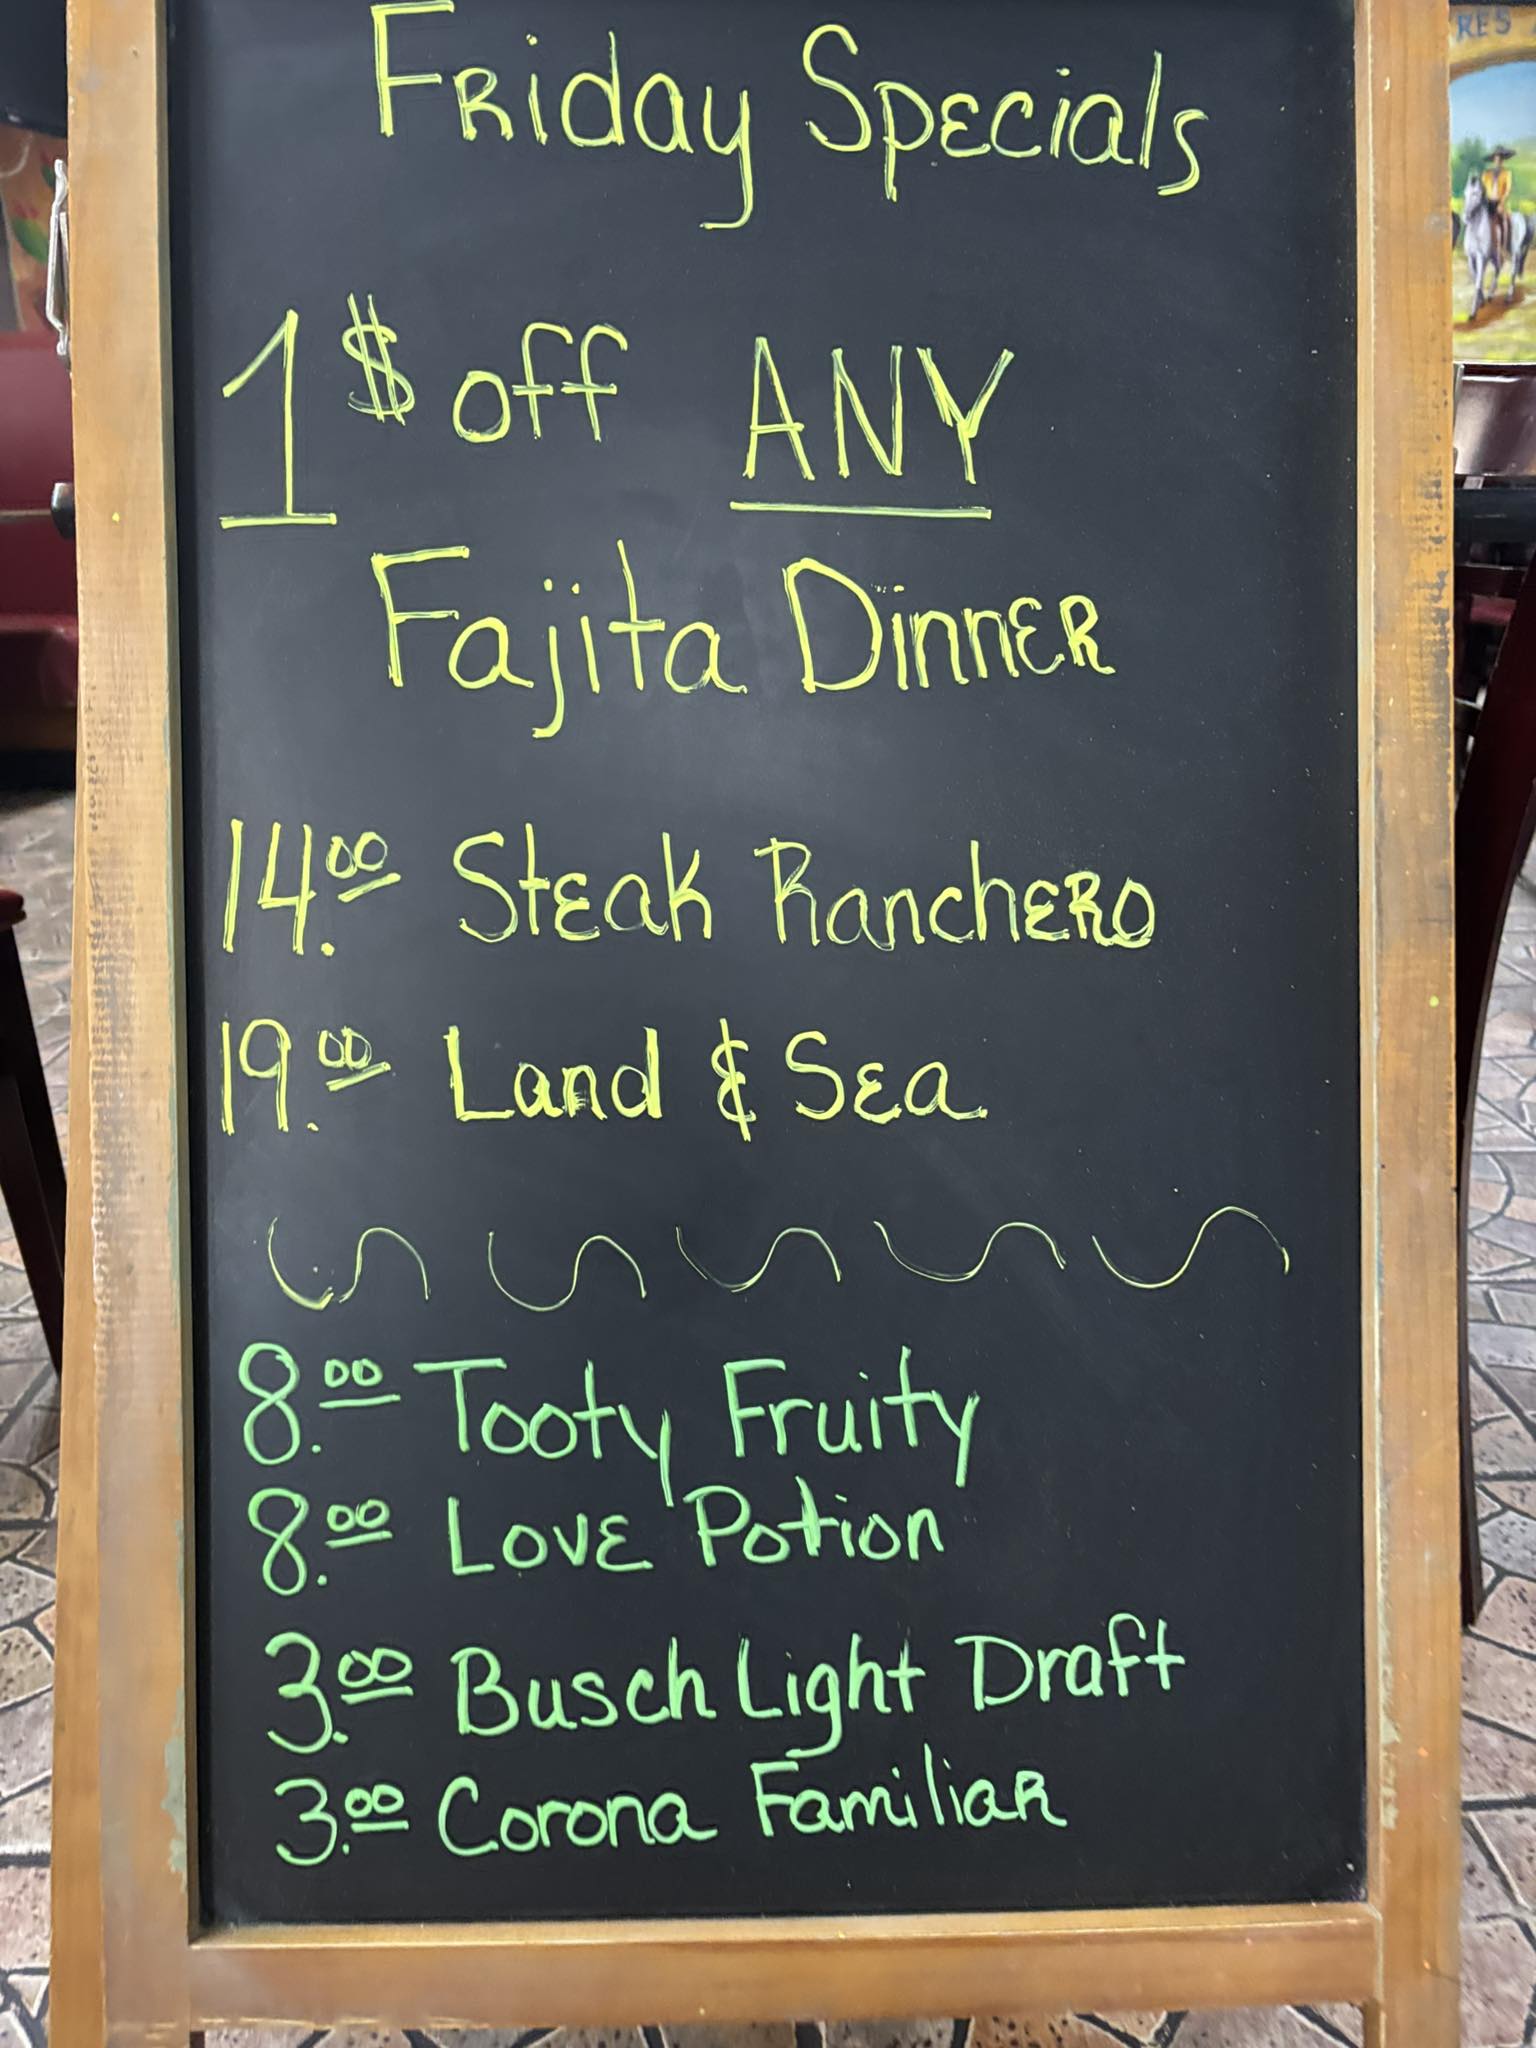 Friday Specials
1$ off ANY
Fajita Dinner
14.00 Steak Ranchero
19.00 Land & Sea
8.00 Tooty Fruity
8.00 Love Potion
3.00 Busch Light Draft
3.00 Corona Familiar
RES